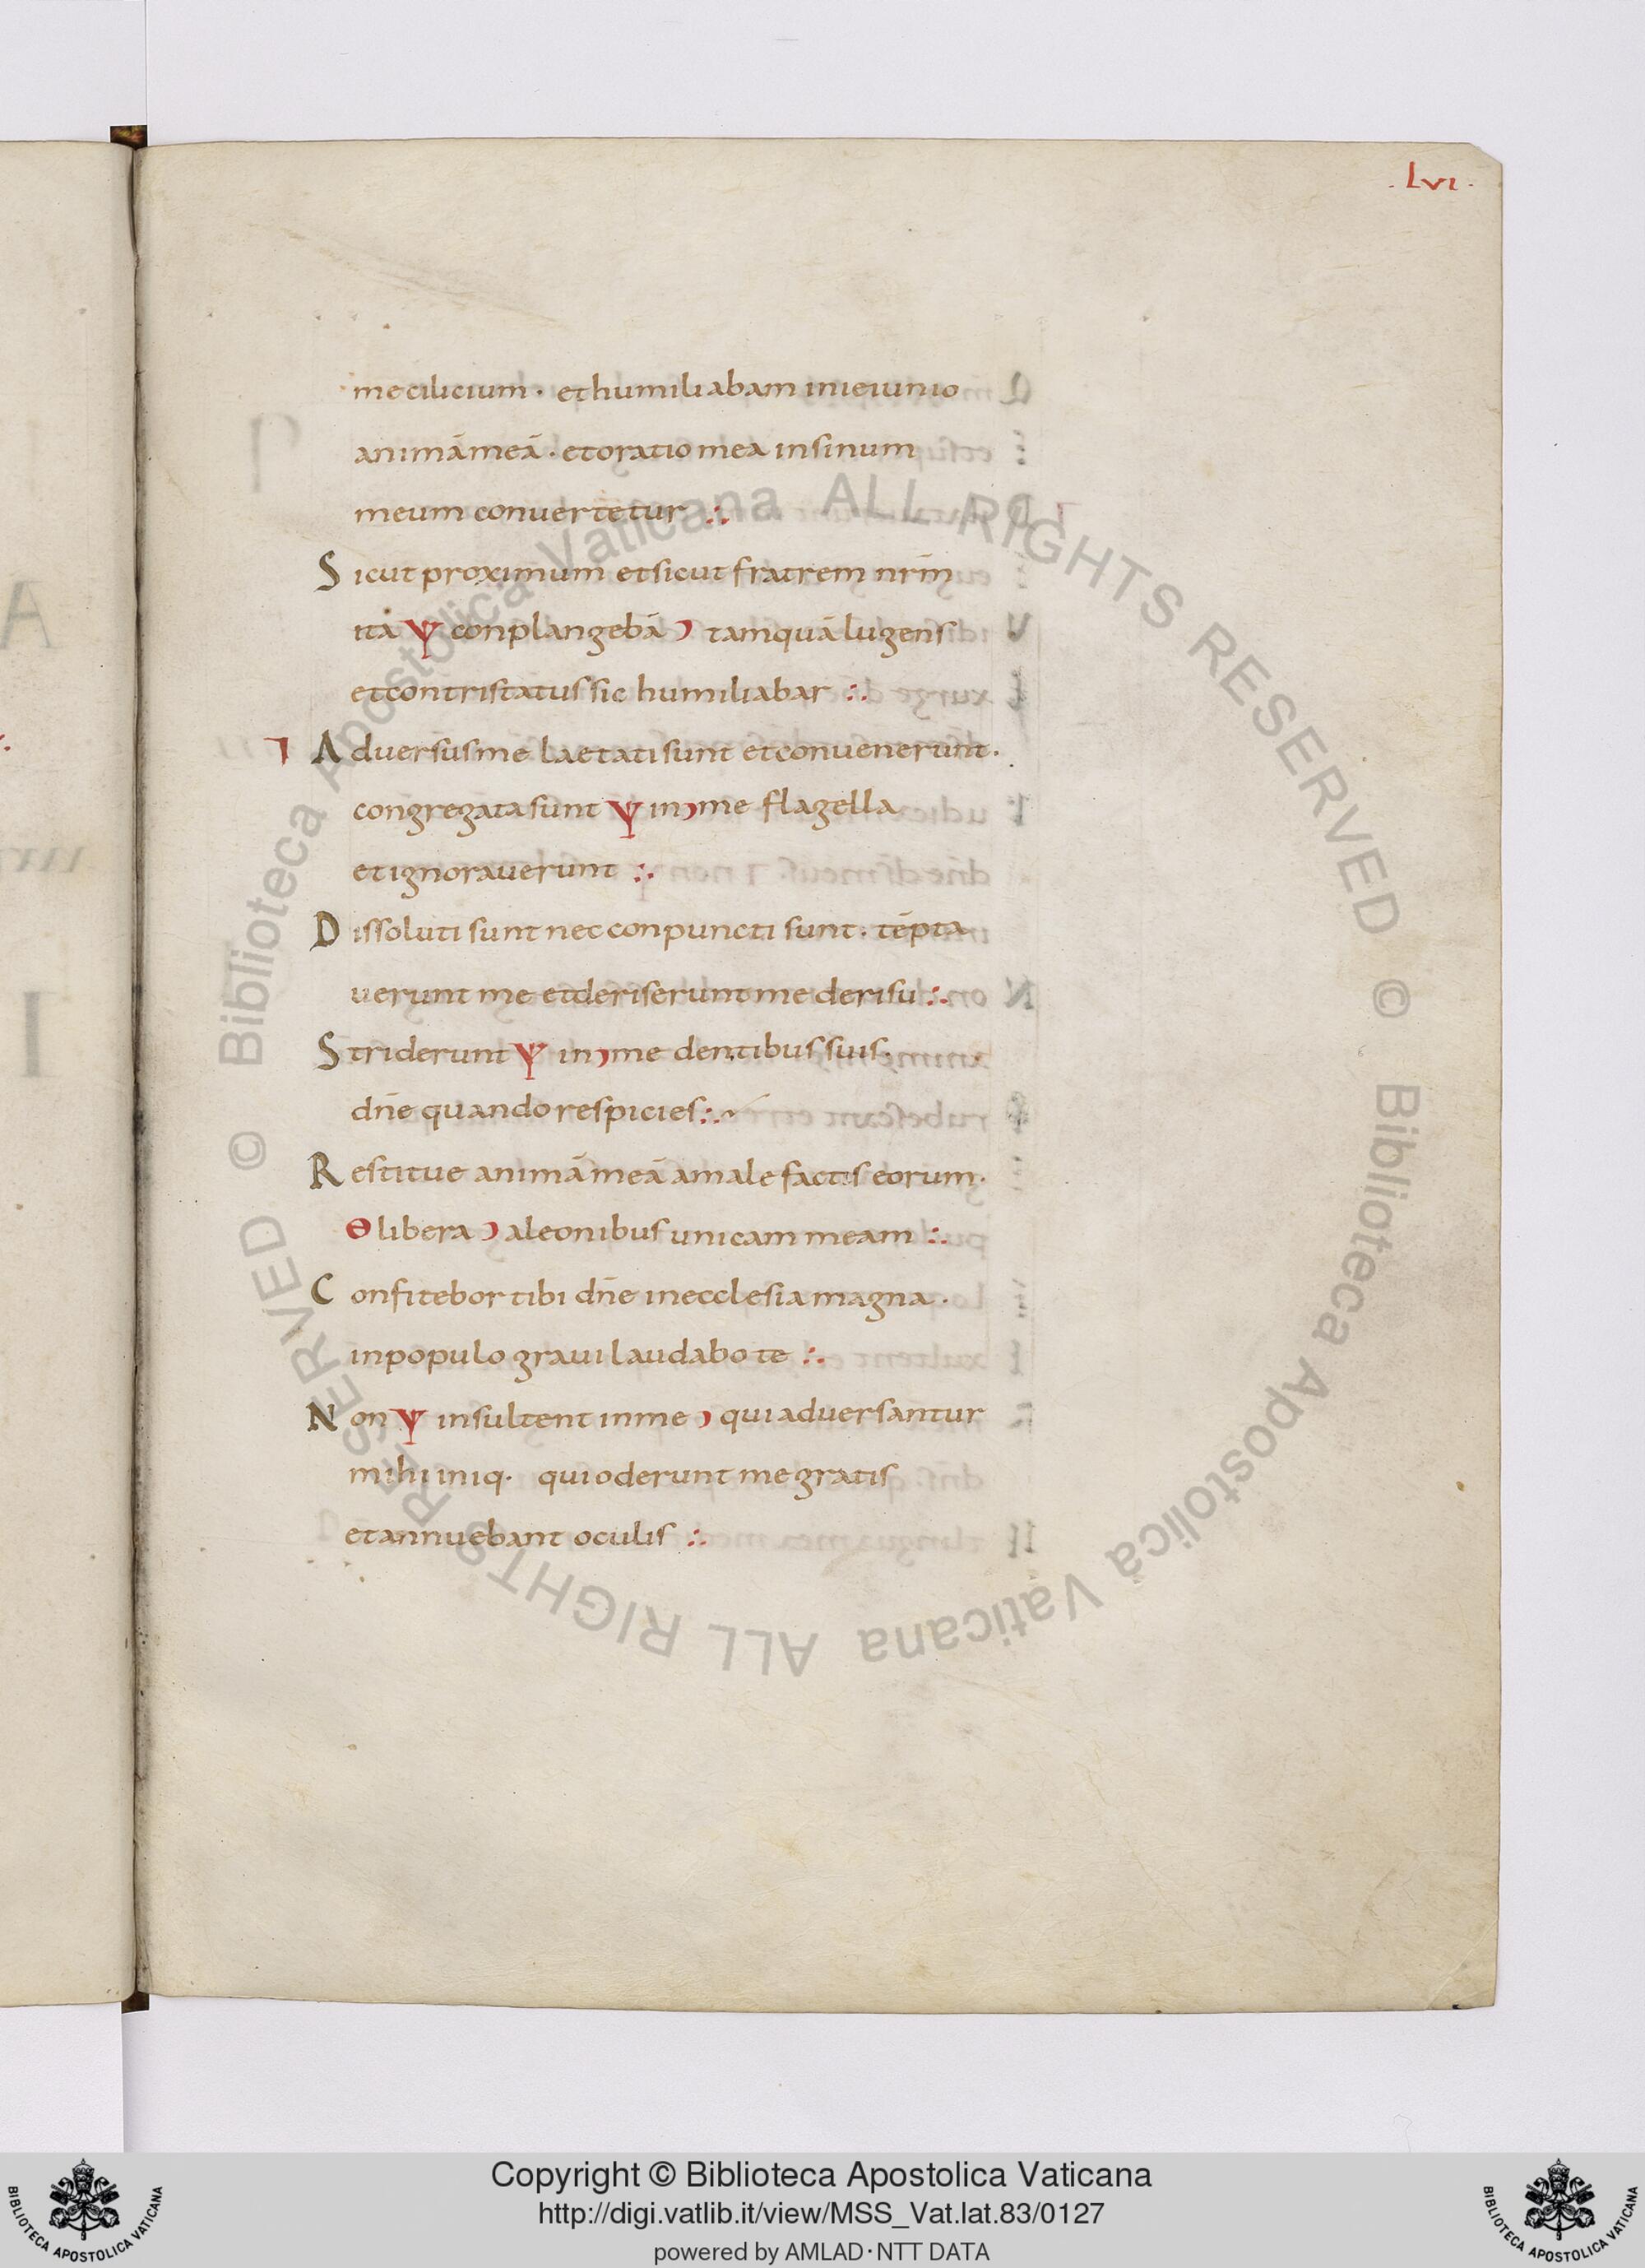 . Lvı .
me cilicium · et humiliabam in ieiunio
animā meā · et oratio mea in sinum
meum conuertetur :.
Sicut proximum et sicut fratrem nr̄m
ita Ψ conplangebā Ͻ tamquā lugens
et contristatus sic humiliabar :.
⁊ Aduersus me laetati sunt et conuenerunt.
congregata sunt Ψ in Ͻ me flagella
et ignorauerunt :.
Dissoluti sunt nec conpuncti sunt. tēpta
uerunt me et deriserunt me derisu :.
Striderunt Ψ in Ͻ me dentibus suis.
dn̄e quando respicies :.
Restitue animā meā a malefactis eorum.
Ɵ libera Ͻ a leonibus unicam meam :.
Confitebor tibi dn̄e in ecclesia magna.
in populo graui laudabo te :.
Non Ψ insultent in me Ͻ qui aduersantur
mihi iniq. qui oderunt me gratis
et annuebant oculis :.
© Biblioteca Apostolica Vaticana ALL RIGHTS RESERVED
© Biblioteca Apostolica Vaticana ALL RIGHTS RESERVED
Copyright © Biblioteca Apostolica Vaticana
http://digi.vatlib.it/view/MSS_Vat.lat.83/0127
powered by AMLAD·NTT DATA
BIBLIOTECA APOSTOLICA VATICANA
BIBLIOTECA APOSTOLICA VATICANA